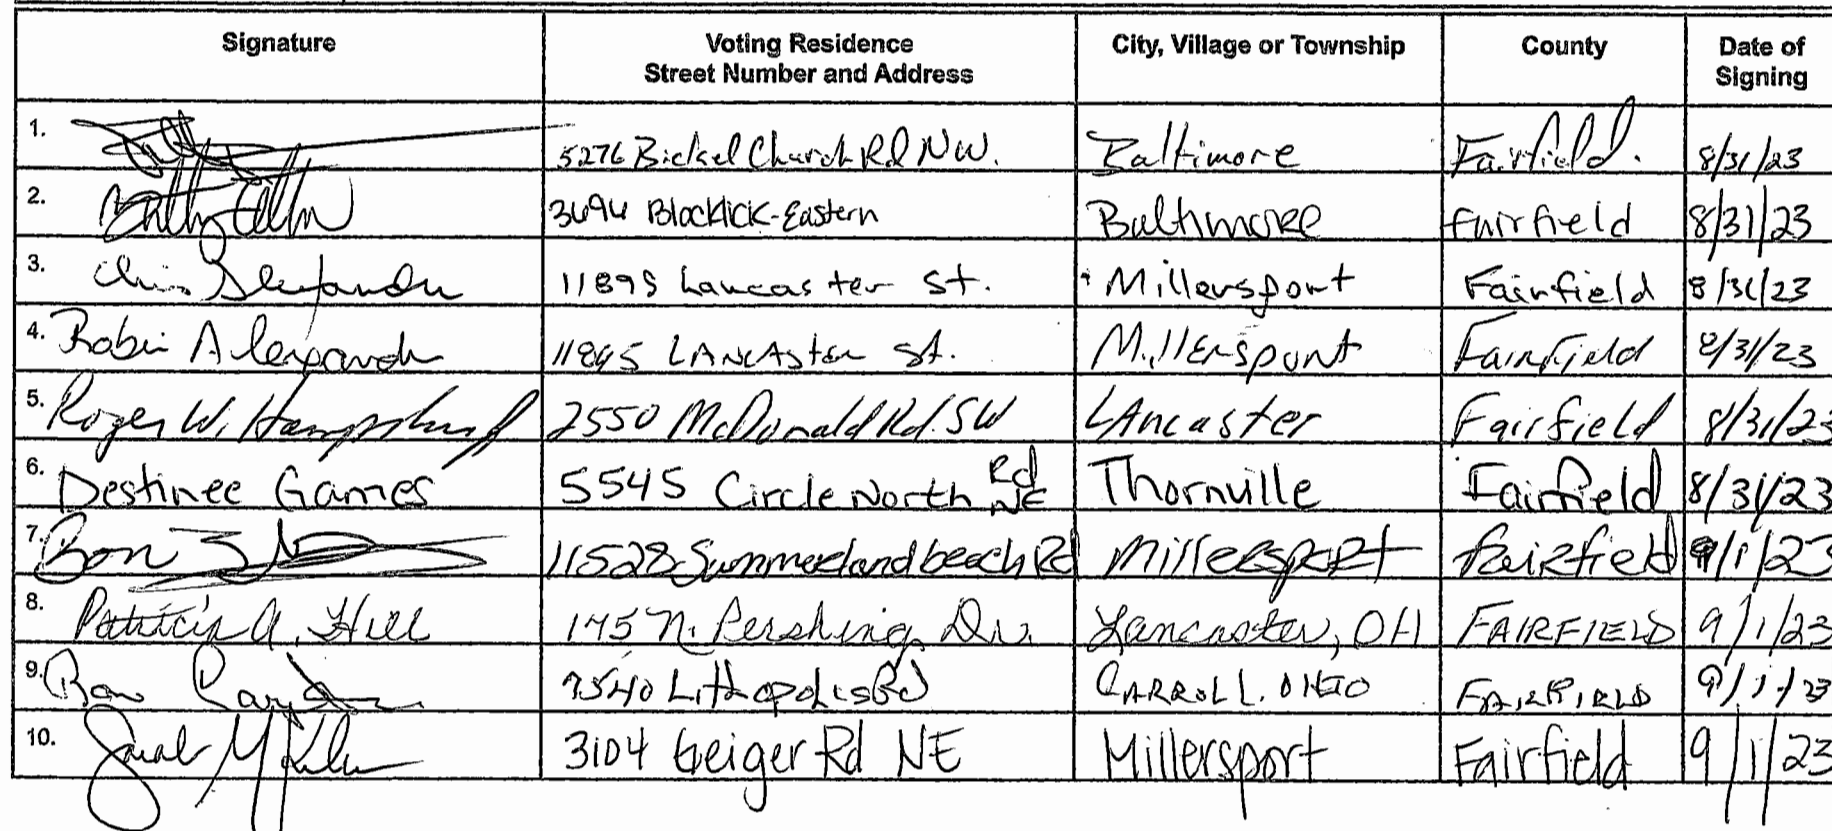 Signature Voting Residence Street Number and Address City, Village or Township County Date of Signing
1. 5276 Bickel Church Rd NW. Baltimore Fairfield. 8/31/23
2. 3694 Blacklick-Eastern Balthmore fairfield 8/31/23
3. Chris Alexander 11895 Lancaster St. Millersport Fairfield 8/31/23
4. Robin Alexander 11895 LANCAster St. Millersport Fairfield 8/31/23
5. Roger W. 2550 McDonald Rd. SW LAncaster Fairfield 8/31/23
6. Destinee Games 5545 Circle North Rd NE Thornville Fairfield 8/31/23
7. Ron 11528 Summerland beach Rd Millersport fairfield 9/1/23
8. Patricia A. Hill 145 N. Pershing Dr. Lancaster, OH FAIRFIELD 9/1/23
9. Ron 7540 Lithopolis Rd CARROLL. OHIO FAIRFIELD 9/1/23
10. Sarah M 3104 Geiger Rd NE Millersport Fairfield 9/1/23